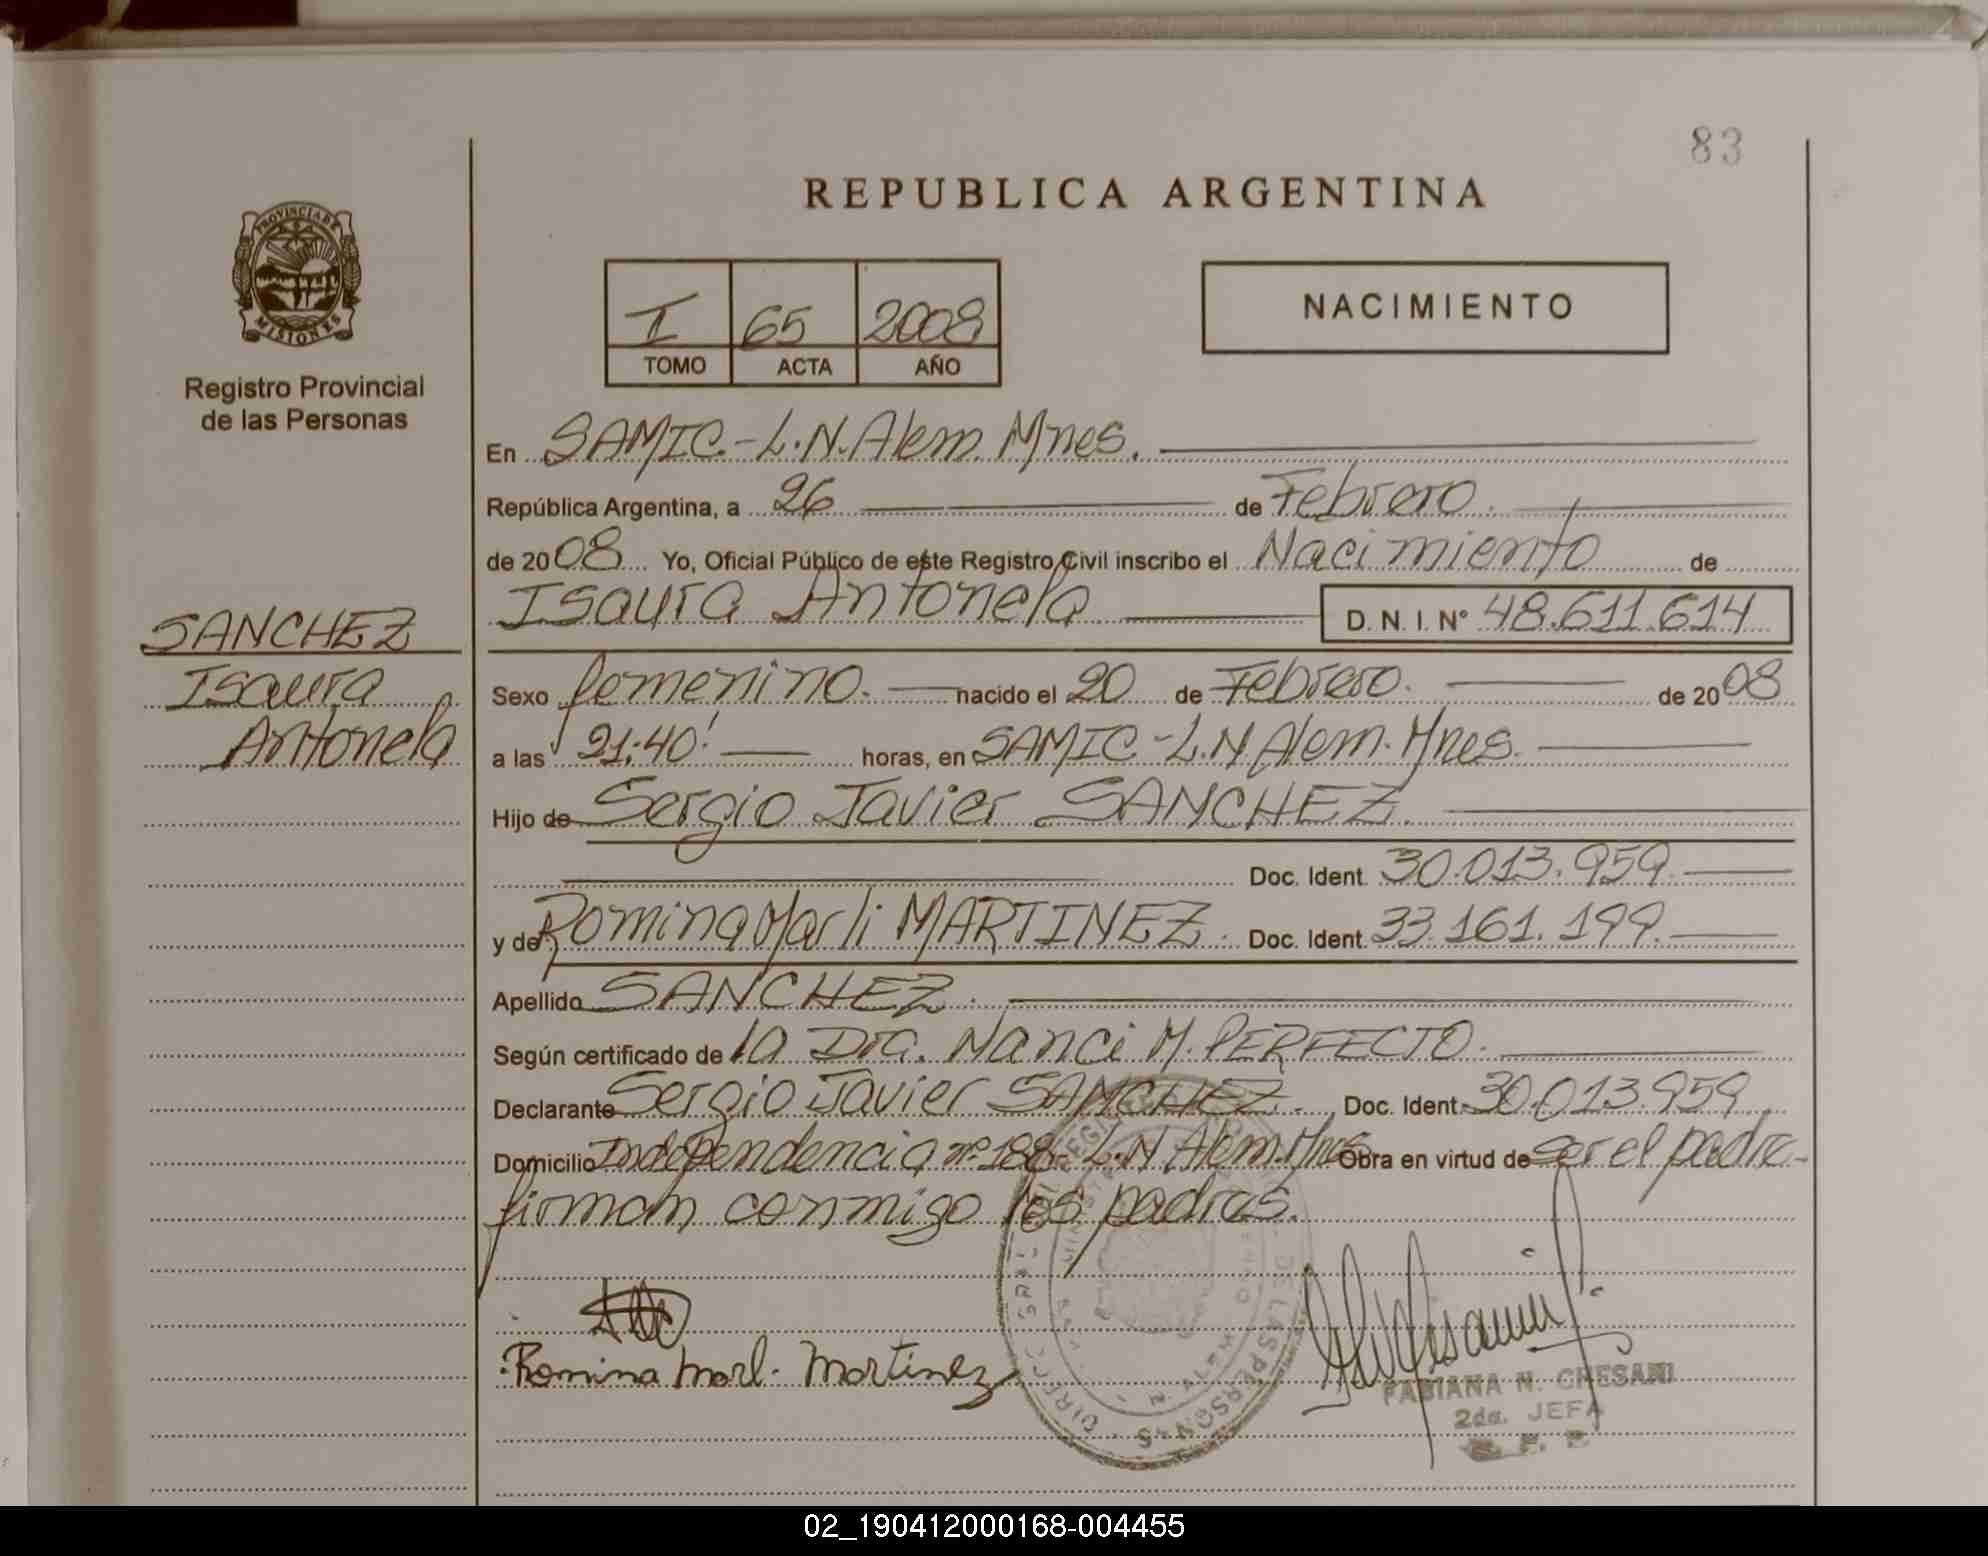 83
REPUBLICA ARGENTINA
PROVINCIA DE
MISIONES
Registro Provincial
de las Personas
I 65 2008
TOMO ACTA AÑO
NACIMIENTO
En SAMIC.-L.N.Alem. Mnes.
República Argentina, a 26 de Febrero.
de 2008 Yo, Oficial Público de este Registro Civil inscribo el Nacimiento de
Isaura Antonela D. N. I. N° 48.611.614
SANCHEZ
Isaura
Antonela
Sexo femenino. nacido el 20 de Febrero. de 2008
a las 21:40' horas, en SAMIC-L.N Alem. Mnes.
Hijo de Sergio Javier SANCHEZ.
Doc. Ident. 30.013.959.
y de Romina Marli MARTINEZ. Doc. Ident. 33.161.199.
Apellido SANCHEZ.
Según certificado de la Dra. Nanci M. PERFECTO.
Declarante Sergio Javier SANCHEZ. Doc. Ident. 30.013.959
Domicilio Independencia nº 188- L.N Alem. Mnes Obra en virtud de ser el padre-
firman conmigo los padres.
Romina Marl. Martinez
DE LAS PERSONAS
FABIANA N. CRESANI
2da. JEFA
02_190412000168-004455